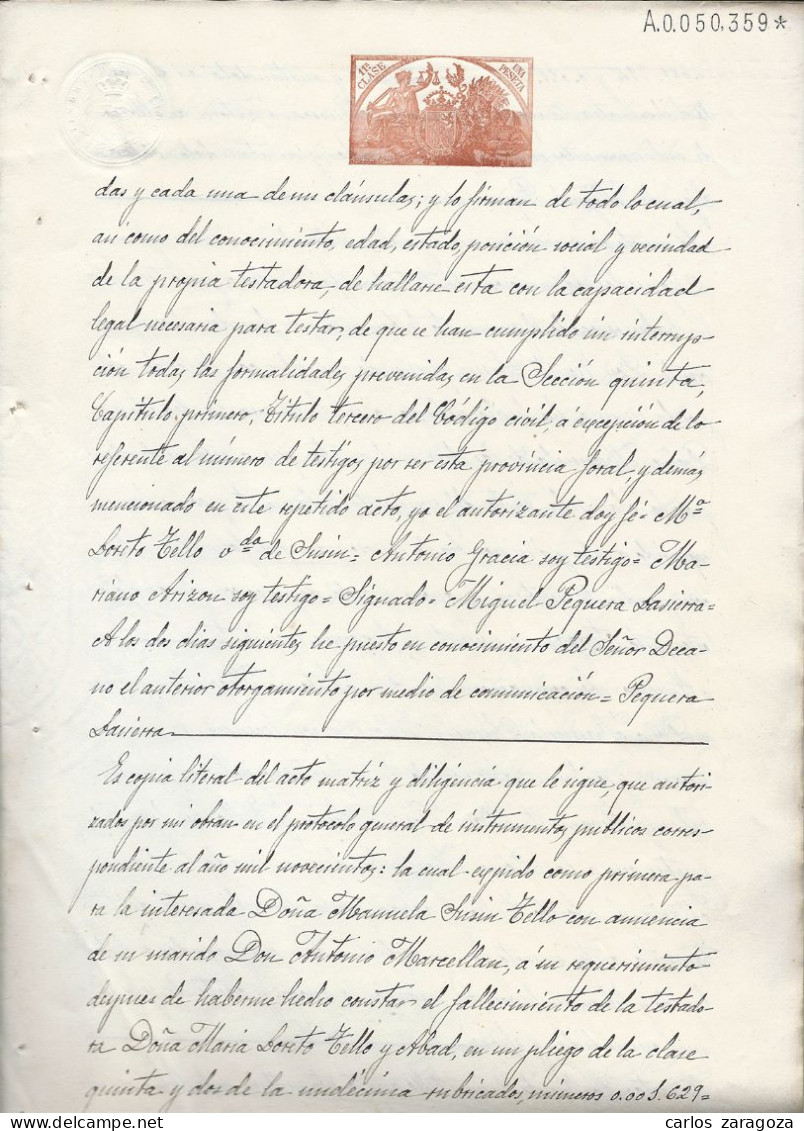 A.0.050,359*
11ª CLASE
UNA PESETA
das y cada una de sus cláusulas; y lo firman de todo lo cual,
así como del conocimiento, edad, estado, posición social y vecindad
de la propia testadora, de hallarse esta con la capacidad
legal necesaria para testar, de que se han cumplido sin interrup-
ción todas las formalidades prevenidas en la Sección quinta,
Capítulo primero, Título tercero del Código civil, á excepción de lo
referente al número de testigos por ser esta provincia foral, y demás
mencionado en este repetido acto, yo el autorizante doy fé = Mª
Loreto Tello vda de Susin = Antonio Gracia soy testigo = Ma-
riano Arizon soy testigo = Signado = Miguel Pequera Lasierra =
A los dos dias siguientes he puesto en conocimiento del Señor Deca-
no el anterior otorgamiento por medio de comunicación = Pequera
Lasierra
Es copia literal del acto matriz y diligencia que le sigue, que autori-
zados por mi obran en el protocolo general de instrumentos publicos corres-
pondiente al año mil novecientos: la cual expido como primera pa-
ra la interesada Doña Manuela Susin Tello con anuencia
de su marido Don Antonio Marcellan, á su requerimiento
depues de haberme hecho constar el fallecimiento de la testado-
ra Doña Maria Loreto Tello y Abad, en un pliego de la clase
quinta y dos de la undécima rubricados, números 0.005.629=
carlos zaragoza